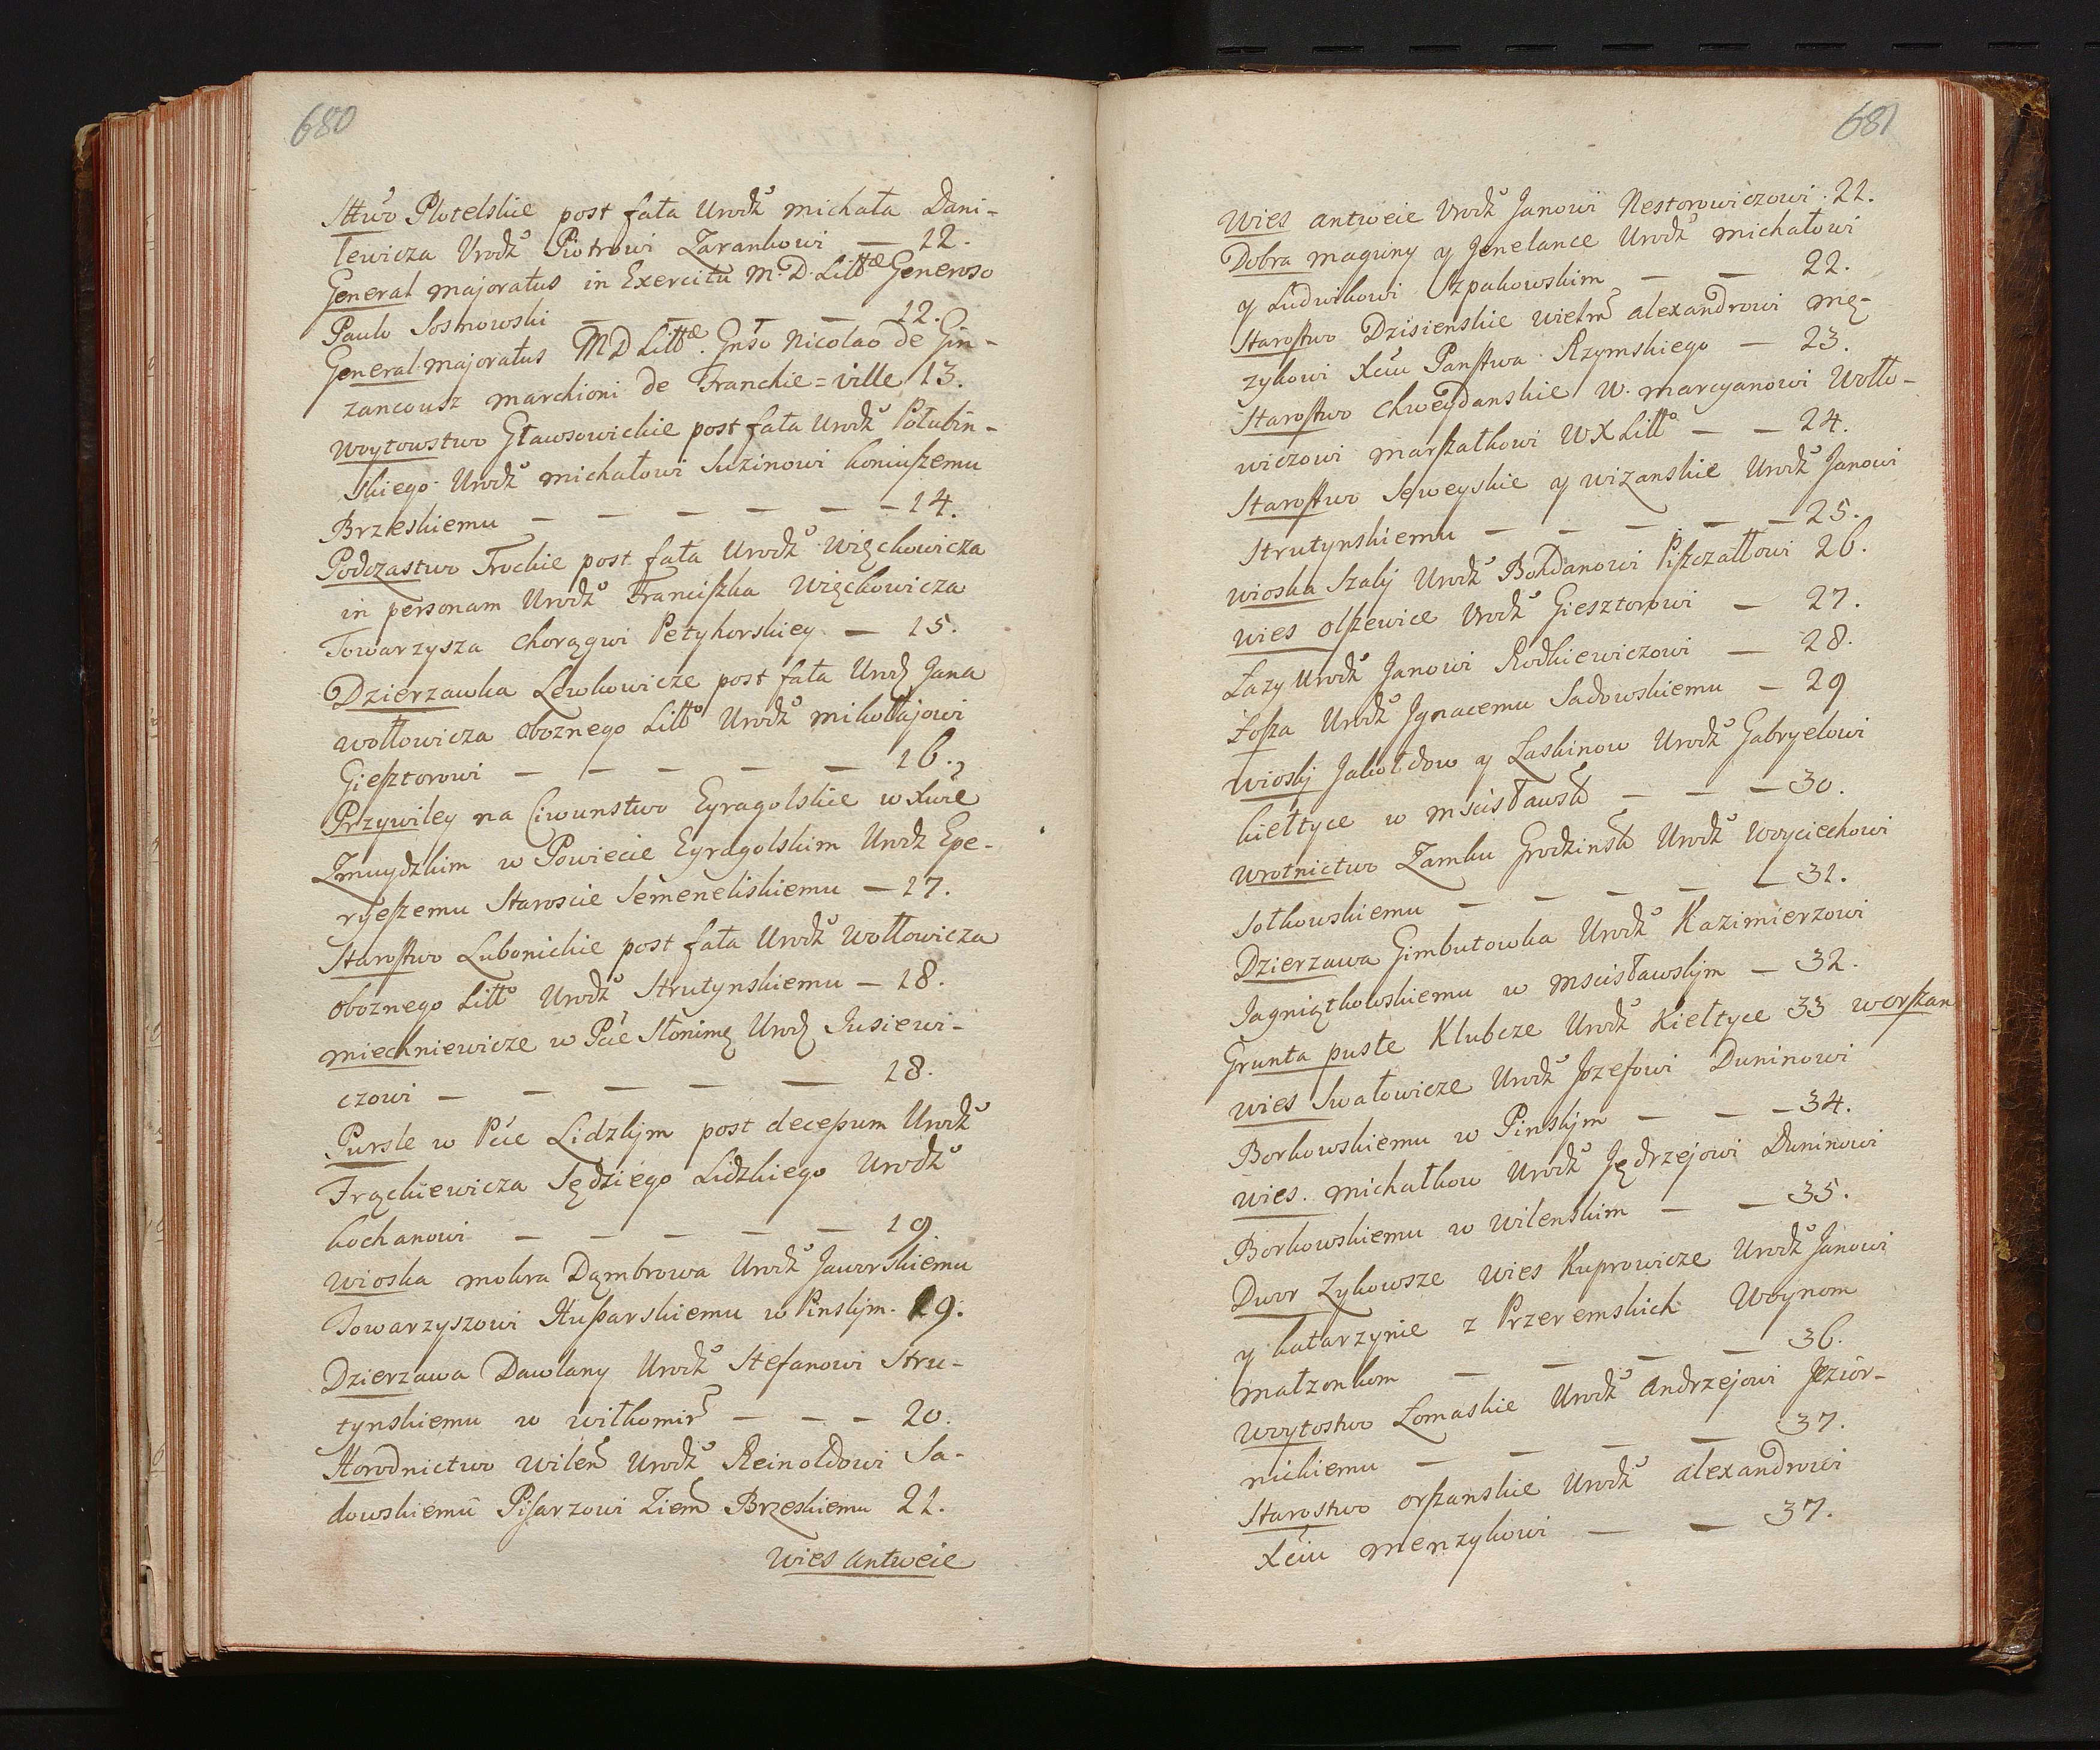 680
Sttwo Plotelskie post fata Urodź michała Dani-
lewicza Urodź Piotrowi Zarankowi — 12.
General majoratus in Exercitu M. D. Littæ Generoso
Paulo Sosnowski — — — — 12.
General majoratus MD Littæ. Gnso Nicolao de Gin-
zancousz marchioni de Franckie=ville 13.
Woytowstwo Gławsowickie post fata Urodź Połubin-
skiego Urodź michałowi Suzinowi koniuszemu
Brzeskiemu — — — — — — 14.
Podczastwo Trockie post fata Urodź Więckowicza
in personam Urodź Franciszka Więckowicza
Towarzysza chorągwi Petyhorskiey — 15.
Dzierzawka Lewkowicze post fata Urodź Jana
wołłowicza oboznego Litt° Urodź mikołłajowi
Giesztorowi — — — — — 16.
Przywiley na Ciwunstwo Eyragolskie w Xwie
Zmuydzkim w Powiecie Eyragolskim Urodz Epe-
ryeszemu Staroscie Semeneliskiemu — 17.
Starostwo Lubonickie post fata Urodź Wołłowicza
oboznego Litt° Urodź Strutynskiemu — 18.
miechniewicze w Pcie Słonimę Urodź Jusiewi-
czowi — — — — — 18.
Pursle w Pcie Lidzkjm post decessum Urodź
Frąckiewicza Sędziego Lidzkiego Urodź
kochanowi — — — — — 19.
wioska mokra Dąmbrowa Urodź Jaworskiemu
Towarzyszowi Hussarskiemu w Pinskjm. 19.
Dzierzawa Dawlany Urodź Stefanowi Stru-
tynskiemu w wiłkomir — — — 20.
Horodnictwo wilen Urodź Reinoldowi Sa-
dowskiemu Pisarzowi Ziem Brzeskiemu 21.
wies Antwcie
681
Wies antwcie Urodź Janowi Nestorowiczowi. 21.
Dobra maguny y Jenelance Urodź michałowi
y Ludwikowi Szpakowskim — — 22.
Starostwo Dzisienskie wielm alexandrowi mę-
zykowi Xciu Panstwa Rzymskiego — 23.
Starostwo chweydanskie W. marcyanowi Wołło-
wiczowi marszałkowi WXLitt° — — 24.
Starostwo Seweyskie y wizanskie Urodź Janowi
Strutynskiemu — — — — — 25.
wioska Szalij Urodź Bohdanowi Piszczałłowi 26.
wies olszewice Urodź Giesztorowi — 27.
Lazy Urodź Janowi Rodkiewiczowi — 28.
Łosza Urodź Jgnacemu Sadowskiemu — 29
wioskj Jakołdow y Laskinow Urodź Gabryelowi
kiełtyce w mscisławsk — — — 30.
Wrotnictwo Zamku Grodzinsk Urodź Woyciechowi
Sołkowskiemu — — — — — 31.
Dzierzawa Gimbutowka Urodź Kazimierzowi
Jagniątkowskiemu w mscisławskjm — 32.
Grunta puste Klubcze Urodź Kiełtyce 33 w orszan
wies Swałowicze Urodź Jozefowi Duninowi
Borkowskiemu w Pinskjm — — — 34.
wies. michałkow Urodź Jędrzejowi Duninowi
Borkowskiemu w wilenskim — — 35.
Dwor Zykowsze wies Kuprowicze Urodź Janowi
y katarzynie z Przeremskich Woynom
małzonkom — — — — 36.
Woytostwo Łomaskie Urodź andrzejowi Jezior-
nickiemu — — — — 37.
Starostwo orszanskie Urodź alexandrowi
Xciu menzykowi — — 37.